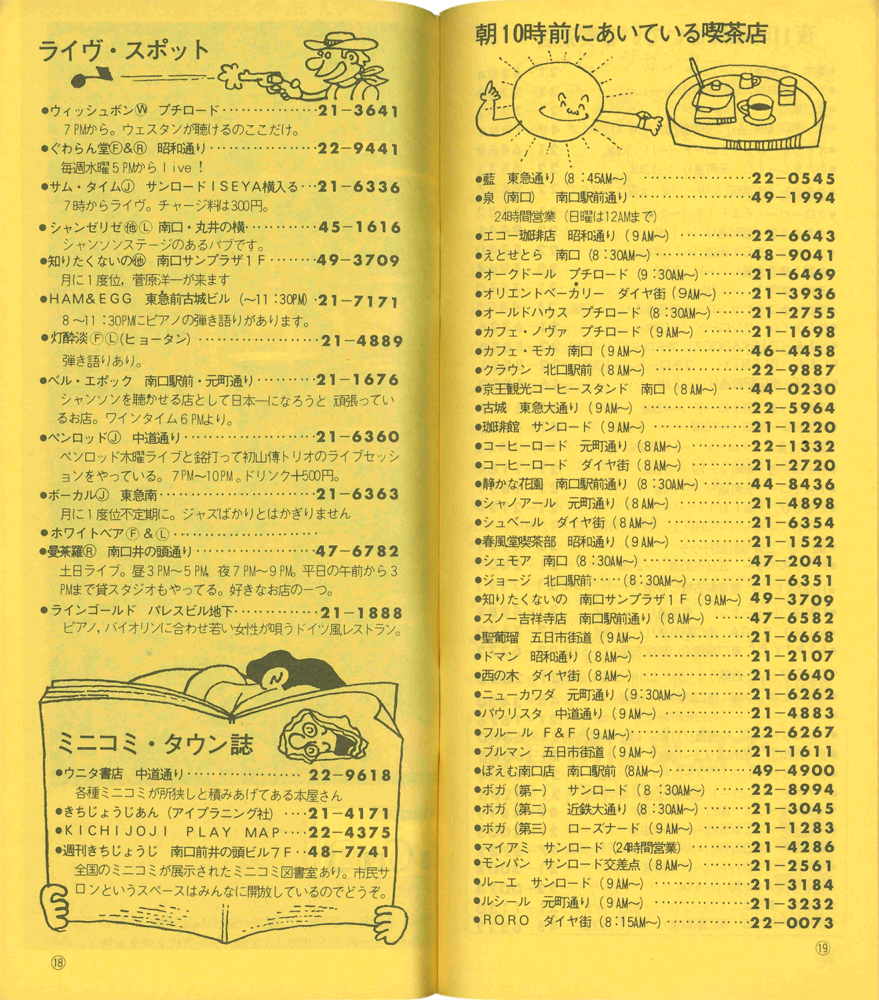 ライヴ・スポット
●ウィッシュボンⓌ プチロード・・・・・・・・・・・・21−3641
7PMから。ウェスタンが聴けるのここだけ。
●ぐわらん堂Ⓕ&Ⓡ 昭和通り・・・・・・・・・・・・22−9441
毎週水曜5PMからlive!
●サム・タイムⒿ サンロードISEYA横入る・・・21−6336
7時からライヴ。チャージ料は300円。
●シャンゼリゼ㊀Ⓛ 南口・丸井の横・・・・・・・・・45−1616
シャンソンステージのあるパブです。
●知りたくないの 南口サンプラザ1F・・・・・・49−3709
月に1度位,菅原洋一が来ます
●HAM&EGG 東急前古城ビル (〜11:30PM)・21−7171
8〜11:30PMにピアノの弾き語りがあります。
●灯酔淡ⒻⓁ(ヒョータン)・・・・・・・・・・・・21−4889
弾き語りあり。
●ベル・エポック 南口駅前・元町通り・・・・・・・・・21−1676
シャンソンを聴かせる店として日本一になろうと 頑張ってい
るお店。ワインタイム6PMより。
●ペンロッドⒿ 中道通り・・・・・・・・・・・・21−6360
ペンロッド木曜ライブと銘打って初山傳トリオのライブセッシ
ョンをやっている。7PM〜10PM。ドリンク+500円。
●ボーカルⒿ 東急南・・・・・・・・・・・・21−6363
月に1度位不定期に。ジャズばかりとはかぎりません
●ホワイトベアⒻ&Ⓛ・・・・・・・・・・・・
●曼荼羅Ⓡ 南口井の頭通り・・・・・・・・・・・・47−6782
土日ライブ。昼3PM〜5PM,夜7PM〜9PM。平日の午前から3
PMまで貸スタジオもやってる。好きなお店の一つ。
●ラインゴールド パレスビル地下・・・・・・・・・21−1888
ピアノ,バイオリンに合わせ若い女性が唄うドイツ風レストラン。
ミニコミ・タウン誌
●ウニタ書店 中道通り・・・・・・・・・・・・22−9618
各種ミニコミが所狭しと積みあげてある本屋さん
●きちじょうじあん(アイプラニング社)・・・・21−4171
●KICHIJOJI PLAY MAP・・・・22−4375
●週刊きちじょうじ 南口前井の頭ビル7F・・48−7741
全国のミニコミが展示されたミニコミ図書室あり。市民サ
ロンというスペースはみんなに開放しているのでどうぞ。
⑱
朝10時前にあいている喫茶店
●藍 東急通り(8:45AM〜)・・・・・・・・・・・・22−0545
●泉(南口) 南口駅前通り・・・・・・・・・・・・49−1994
24時間営業(日曜は12AMまで)
●エコー珈琲店 昭和通り(9AM〜)・・・・・・・・・22−6643
●えとせとら 南口(8:30AM〜)・・・・・・・・・48−9041
●オークドール プチロード(9:30AM〜)・・・・・・21−6469
●オリエントベーカリー ダイヤ街(9AM〜)・・・・・21−3936
●オールドハウス プチロード(8:30AM〜)・・・・・・21−2755
●カフェ・ノヴァ プチロード(9AM〜)・・・・・・・・・21−1698
●カフェ・モカ 南口(9AM〜)・・・・・・・・・・・・46−4458
●クラウン 北口駅前(8AM〜)・・・・・・・・・・・・22−9887
●京王観光コーヒースタンド 南口(8AM〜)・・・・44−0230
●古城 東急大通り(9AM〜)・・・・・・・・・・・・22−5964
●珈琲館 サンロード(9AM〜)・・・・・・・・・・・・21−1220
●コーヒーロード 元町通り(8AM〜)・・・・・・・・・22−1332
●コーヒーロード ダイヤ街(8AM〜)・・・・・・・・・21−2720
●静かな花園 南口駅前通り(8:30AM〜)・・・・・・44−8436
●シャノアール 元町通り(8AM〜)・・・・・・・・・21−4898
●シュベール ダイヤ街(8AM〜)・・・・・・・・・21−6354
●春風堂喫茶部 昭和通り(9AM〜)・・・・・・・・・21−1522
●シェモア 南口(8:30AM〜)・・・・・・・・・・・・47−2041
●ジョージ 北口駅前・・・・・(8:30AM〜)・・・・・・・・・21−6351
●知りたくないの 南口サンプラザ1F(9AM〜) 49−3709
●スノー吉祥寺店 南口駅前通り(8AM〜)・・・・・・47−6582
●聖葡瑠 五日市街道(9AM〜)・・・・・・・・・・・・21−6668
●ドマン 昭和通り(8AM〜)・・・・・・・・・・・・21−2107
●西の木 ダイヤ街(8AM〜)・・・・・・・・・・・・21−6640
●ニューカワダ 元町通り(9:30AM〜)・・・・・・・・・21−6262
●パウリスタ 中道通り(9AM〜)・・・・・・・・・21−4883
●フルール F&F(9AM〜)・・・・・・・・・・・・22−6267
●ブルマン 五日市街道(9AM〜)・・・・・・・・・21−1611
●ぽえむ南口店 南口駅前(8AM〜)・・・・・・・・・49−4900
●ボガ(第一) サンロード(8:30AM〜)・・・・・・22−8994
●ボガ(第二) 近鉄大通り(8:30AM〜)・・・・・・21−3045
●ボガ(第三) ローズナード(9AM〜)・・・・・・21−1283
●マイアミ サンロード(24時間営業)・・・・・・・・・21−4286
●モンバン サンロード交差点(8AM〜)・・・・・・・・・21−2561
●ルーエ サンロード(9AM〜)・・・・・・・・・・・・21−3184
●ルシール 元町通り(9AM〜)・・・・・・・・・・・・21−3232
●RORO ダイヤ街(8:15AM〜)・・・・・・・・・・・・22−0073
⑲